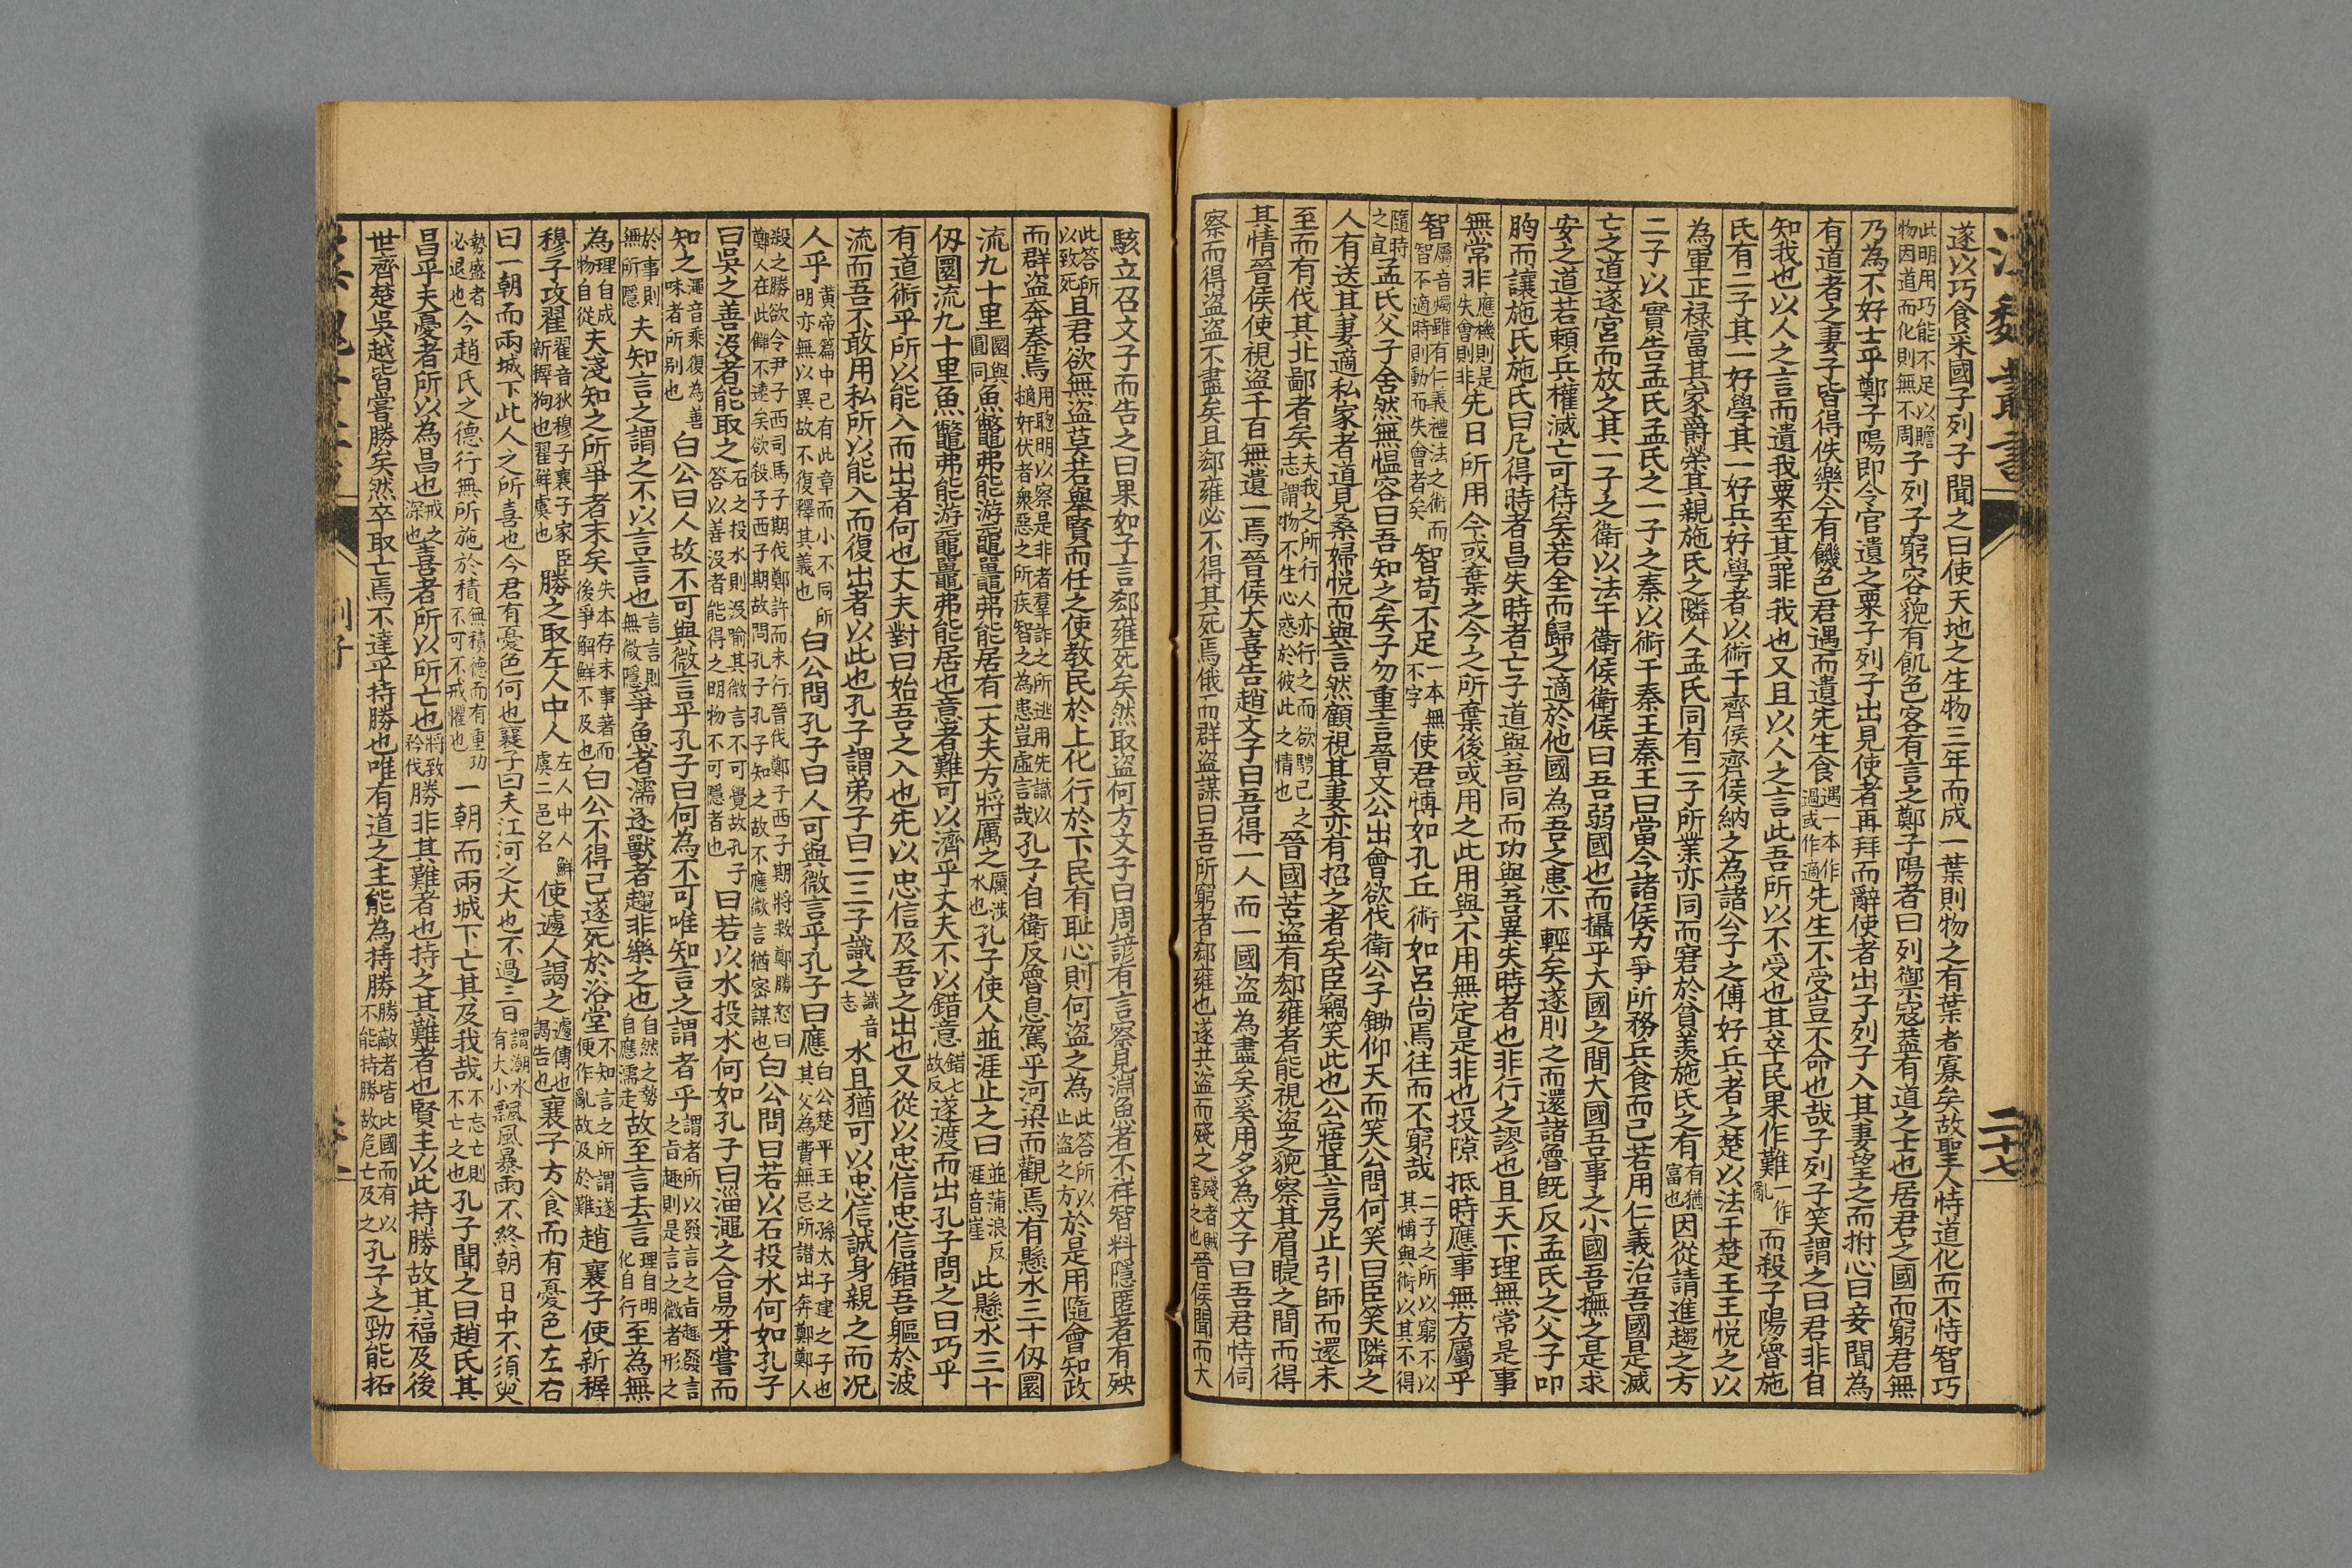 漢魏叢書
二十七
遂以巧食宋國子列子聞之曰使天地之生物三年而成一葉則物之有葉者寡矣故聖人恃道化而不恃智巧
此明用巧能不足以贍物因道而化則無不周子列子窮容貌有飢色客有言之鄭子陽者曰列禦寇蓋有道之士也居君之國而窮君無
乃為不好士乎鄭子陽即令官遺之粟子列子出見使者再拜而辭使者出子列子入其妻望之而拊心曰妾聞為
有道者之妻子皆得佚樂今有饑色君遇而遺先生食遇一本作過或作適先生不受豈不命也哉子列子笑謂之曰君非自
知我也以人之言而遺我粟至其罪我也又且以人之言此吾所以不受也其卒民果作難一作亂而殺子陽魯施
氏有二子其一好學其一好兵好學者以術干齊侯齊侯納之為諸公子之傅好兵者之楚以法干楚王王悅之以
為軍正祿富其家爵榮其親施氏之隣人孟氏同有二子所業亦同而窘於貧羨施氏之有有猶富也因從請進趨之方
二子以實告孟氏孟氏之一子之秦以術干秦王秦王曰當今諸侯力爭所務兵食而已若用仁義治吾國是滅
亡之道遂宮而放之其一子之衛以法干衛侯衛侯曰吾弱國也而攝乎大國之間大國吾事之小國吾撫之是求
安之道若賴兵權滅亡可待矣若全而歸之適於他國為吾之患不輕矣遂刖之而還諸魯旣反孟氏之父子叩
胸而讓施氏施氏曰凡得時者昌失時者亡子道與吾同而功與吾異失時者也非行之謬也且天下理無常是事
無常非應機則是失會則非先日所用今或棄之今之所棄後或用之此用與不用無定是非也投隙抵時應事無方屬乎
智屬音燭雖有仁義禮法之術而智不適時則動而失會者矣智苟不足一本無不字使君愽如孔丘術如呂尚焉往而不窮哉二子之所以窮不以其愽與術以其不得
隨時之宜孟氏父子舍然無慍容曰吾知之矣子勿重言晉文公出會欲伐衛公子鋤仰天而笑公問何笑曰臣笑隣之
人有送其妻適私家者道見桑婦悅而與言然顧視其妻亦有招之者矣臣竊笑此也公寤其言乃止引師而還未
至而有伐其北鄙者矣夫我之所行人亦行之而欲騁己之志謂物不生心惑於彼此之情也晉國苦盜有郄雍者能視盜之貌察其眉睫之間而得
其情晉侯使視盜千百無遺一焉晉侯大喜告趙文子曰吾得一人而一國盜為盡矣奚用多為文子曰吾君恃伺
察而得盜盜不盡矣且郄雍必不得其死焉俄而群盜謀曰吾所窮者郄雍也遂共盜而殘之殘者賊害之也晉侯聞而大
駭立召文子而告之曰果如子言郄雍死矣然取盜何方文子曰周諺有言察見淵魚者不祥智料隱匿者有殃
此答所以致死且君欲無盜莫若舉賢而任之使教民於上化行於下民有恥心則何盜之為此答所以止盜之方於是用隨會知政
而群盜奔秦焉用聰明以察是非者羣詐之所逃用先識以擿奸伏者衆惡之所疾智之為患豈虛言哉孔子自衛反魯息駕乎河梁而觀焉有懸水三十仞圜
流九十里圜與圓同魚鼈弗能游黿鼉弗能居有一丈夫方將厲之厲涉水也孔子使人並涯止之曰並蒲浪反涯音崖此懸水三十
仞圜流九十里魚鼈弗能游黿鼉弗能居也意者難可以濟乎丈夫不以錯意錯七故反遂渡而出孔子問之曰巧乎
有道術乎所以能入而出者何也丈夫對曰始吾之入也先以忠信及吾之出也又從以忠信忠信錯吾軀於波
流而吾不敢用私所以能入而復出者以此也孔子謂弟子曰二三子識之識音志水且猶可以忠信誠身親之而況
人乎黃帝篇中已有此章而小不同所明亦無以異故不復釋其義也白公問孔子曰人可與微言乎孔子曰應白公楚平王之孫太子建之子也其父為費無忌所譖出奔鄭鄭人
殺之勝欲令尹子西司馬子期伐鄭許而未行晉伐鄭子西子期將救鄭勝怒曰鄭人在此讎不遠矣欲殺子西子期故問孔子孔子知之故不應微言猶密謀也白公問曰若以石投水何如孔子
曰吳之善沒者能取之石之投水則沒喻其微言不可覺故孔子答以善沒者能得之明物不可隱者也曰若以水投水何如孔子曰淄澠之合易牙嘗而
知之澠音乘復為善味者所别也白公曰人故不可與微言乎孔子曰何為不可唯知言之謂者乎謂者所以發言之旨趣發言之旨趣則是言之微者形之
於事則無所隱夫知言之謂之不以言言也言言則無微隱爭魚者濡逐獸者趨非樂之也自然之勢自應濡走故至言去言理自明化自行至為無
為理自成物自從夫淺知之所爭者末矣失本存末事著而後爭解鮮不及也白公不得已遂死於浴堂不知言之所謂遂便作亂故及於難趙襄子使新穉
穆子攻翟翟音狄穆子襄子家臣新穉狗也翟鮮虞也勝之取左人中人左人中人鮮虞二邑名使遽人謁之遽傳也謁告也襄子方食而有憂色左右
曰一朝而兩城下此人之所喜也今君有憂色何也襄子曰夫江河之大也不過三日謂潮水有大小飄風暴雨不終朝日中不須臾
勢盛者必退也今趙氏之德行無所施於積無積德而有重功不可不戒懼也一朝而兩城下亡其及我哉不忘亡則不亡之也孔子聞之曰趙氏其
昌乎夫憂者所以為昌也戒之深也喜者所以所亡也將致矜伐勝非其難者也持之其難者也賢主以此持勝故其福及後
世齊楚吳越皆嘗勝矣然卒取亡焉不達乎持勝也唯有道之主能為持勝勝敵者皆此國而有以不能持勝故危亡及之孔子之勁能拓
列子